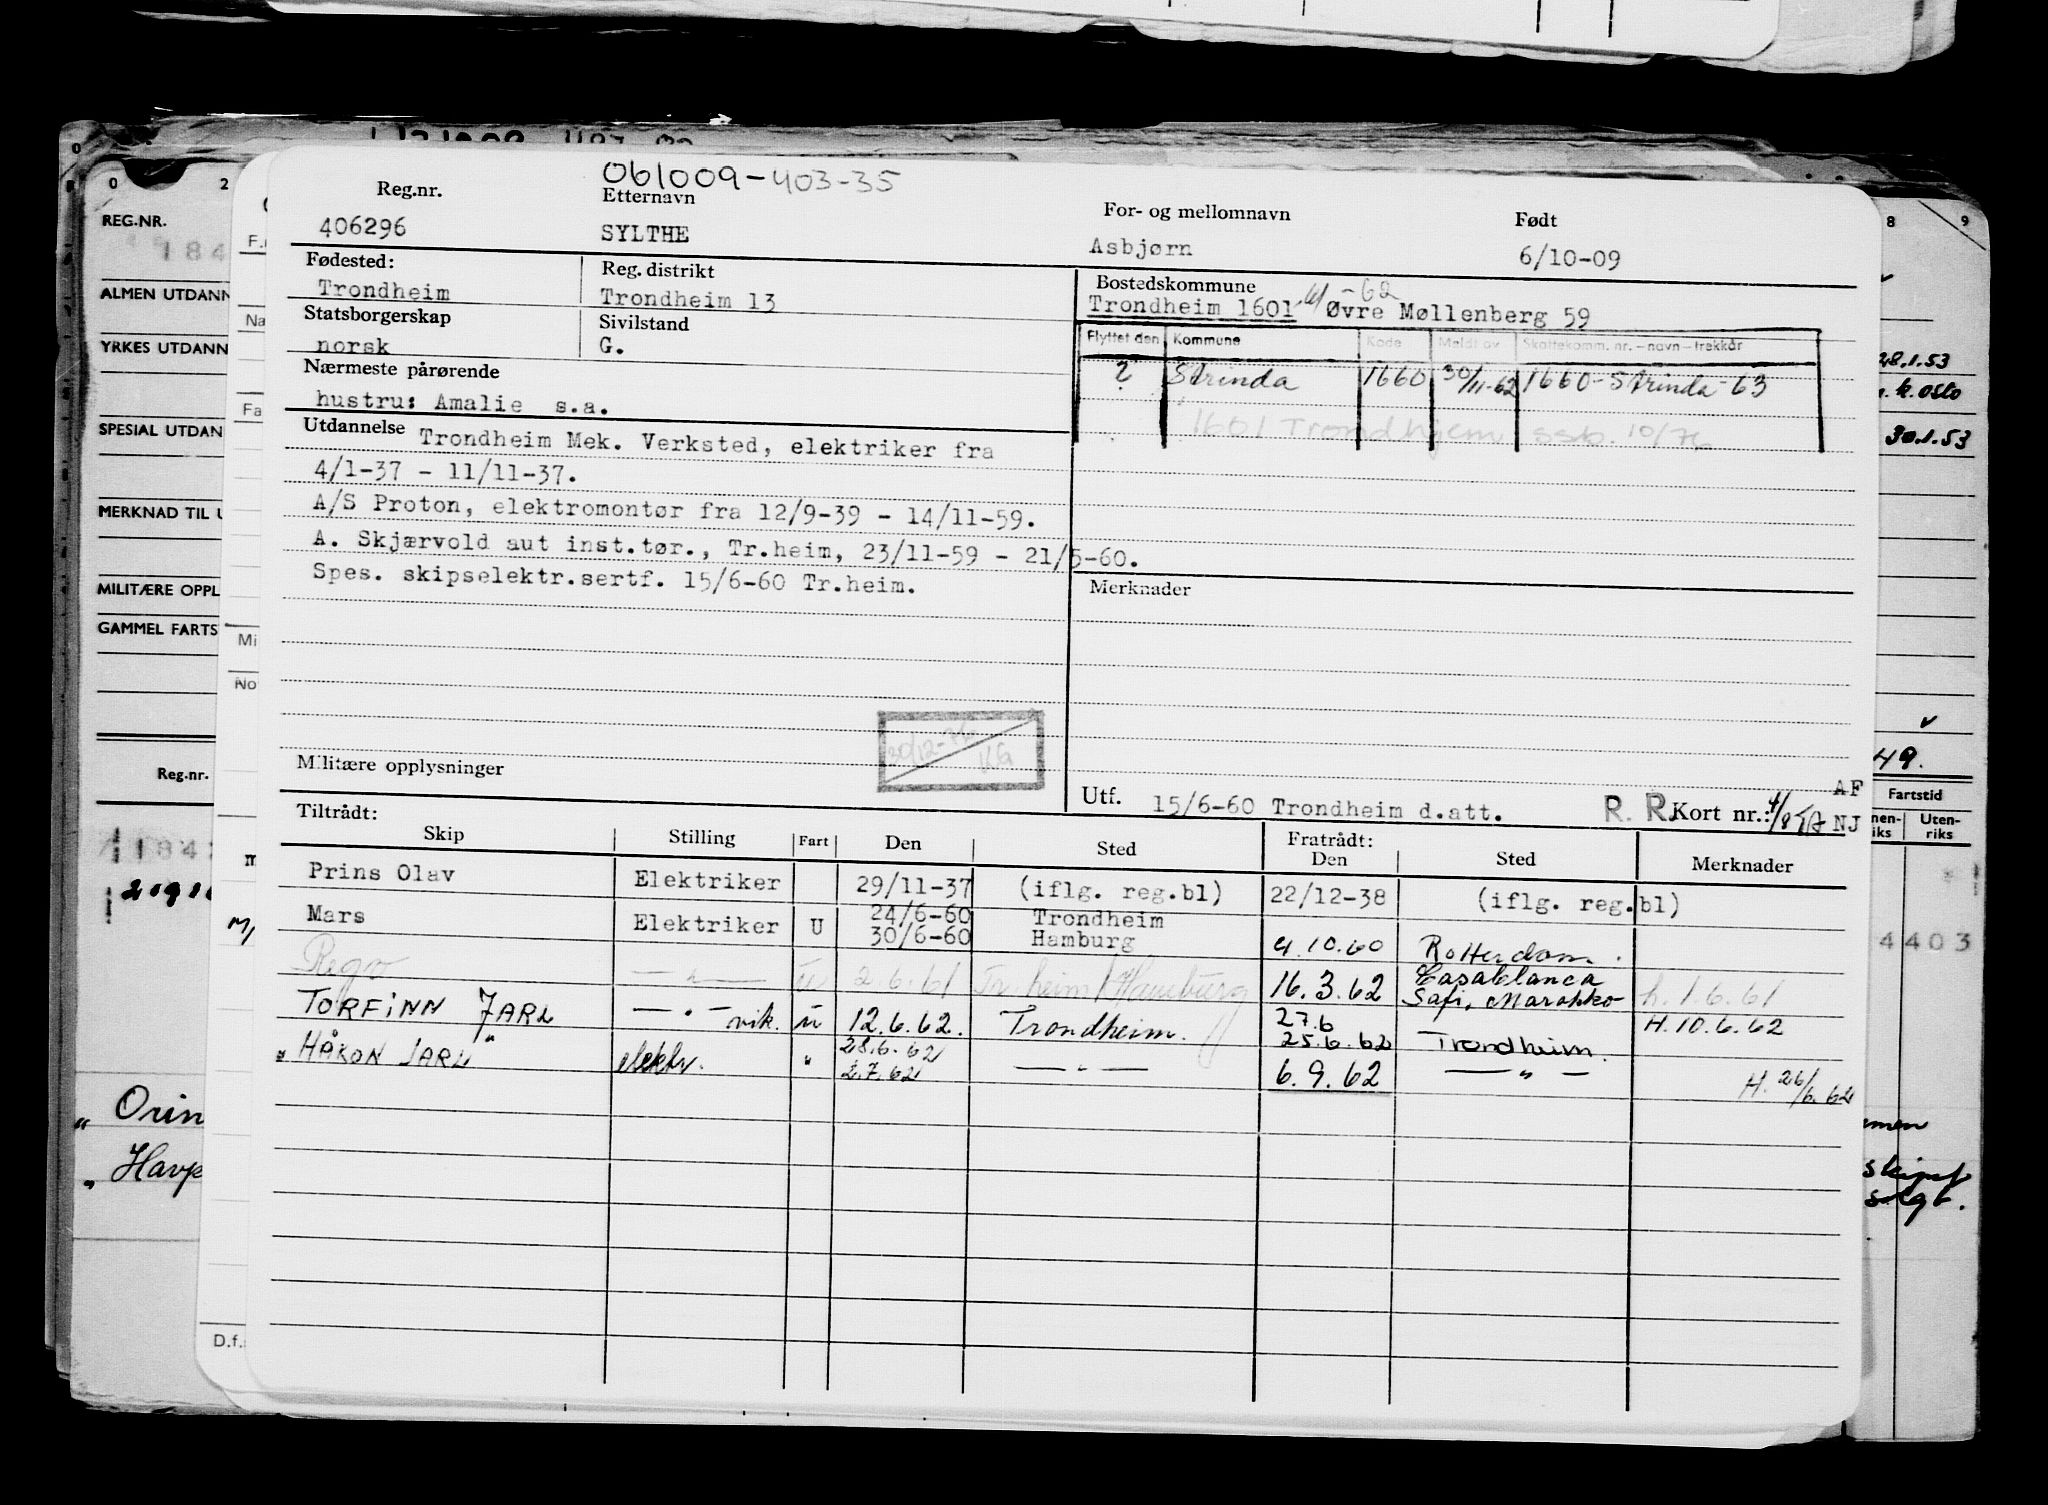 061009-403-35
Reg.nr. Etternavn For- og mellomnavn Født
406296 SYLTHE Asbjørn 6/10-09
Fødested: Reg. distrikt Bostedskommune
Trondheim Trondheim 13 Trondheim 1601 -62 Øvre Møllenberg 59
Statsborgerskap Sivilstand
norsk G.
Flyttet den Kommune Kode Meldt av Skattekomm. nr. - navn - trekkår
? Strinda 1660 30/11-62 1660-Strinda-63
1601 Trondhjem ssb. 10/76
Nærmeste pårørende
hustru: Amalie s.a.
Utdannelse Trondheim Mek. Verksted, elektriker fra
4/1-37 - 11/11-37.
A/S Proton, elektromontør fra 12/9-39 - 14/11-59.
A. Skjærvold aut inst.tør., Tr.heim, 23/11-59 - 21/5-60.
Spes. skipselektr.sertf. 15/6-60 Tr.heim.
Merknader
20/12-76 KG
Militære opplysninger
Utf. 15/6-60 Trondheim d.att. R. R. Kort nr.: AF
NJ
Tiltrådt: Fratrådt:
Skip Stilling Fart Den Sted Den Sted Merknader
Prins Olav Elektriker 29/11-37 (iflg. reg.bl) 22/12-38 (iflg. reg.bl)
Mars Elektriker U 24/6-60 Trondheim
30/6-60 Hamburg 4.10.60 Rotterdam.
Rego — " — u 2.6.61 Tr.heim/Hamburg 16.3.62 Casablanca
Safi, Marokko h. 1.6.61
TORFINN JARL — " — vik. u 12.6.62. Trondheim. 27.6
25.6.62 Trondheim. H. 10.6.62
" HÅKON JARL" elektr. " 28.6.62
2.7.62 — " — 6.9.62 — " — H. 26/6.62
REG.NR.
184
ALMEN UTDANN
YRKES UTDANN
SPESIAL UTDAN
MERKNAD TIL U
MILITÆRE OPPL
GAMMEL FARTS
Reg.nr.
184
" Orin
" Havp
F.
Na
Fa
Mi
No
M/
D.f.
0 2
8 9
28.1.53
k. Oslo
30.1.53
49.
Fartstid
nen-
iks Uten-
riks
4403
men
skipet
solgt.